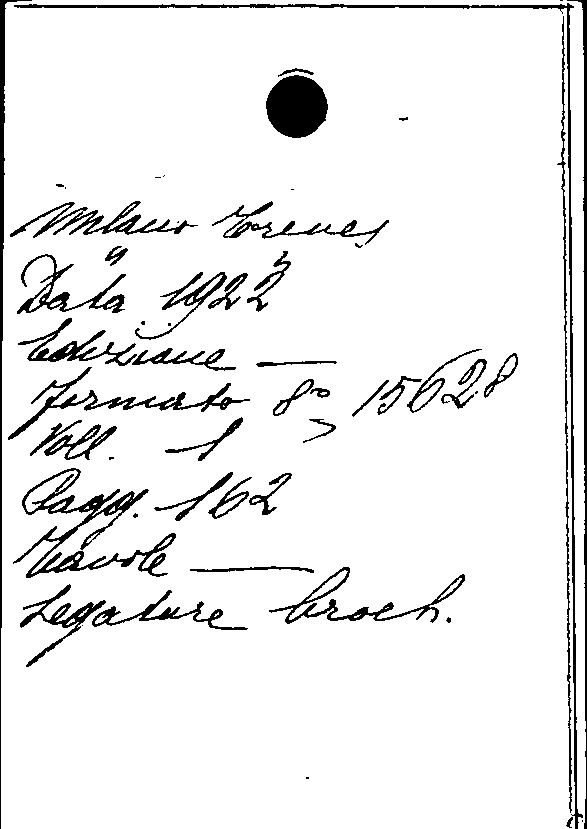 Milano Treves
Data 1922
Edizione —
formato 8° 15628
Voll. 1
Pagg. 162
Tavole —
Legature broch.